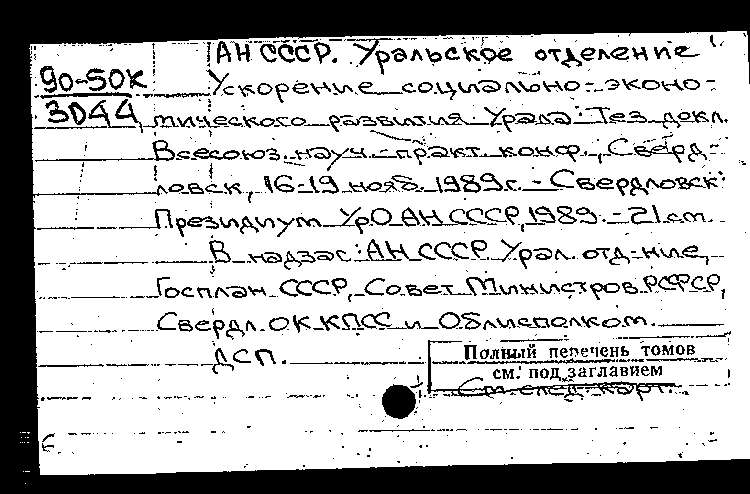 АН СССР. Уральское отделение
90-50К
3044
Ускорение социально-эконо-
мического развития Урала: Тез. докл.
Всесоюз. науч.-практ. конф., Сверд-
ловск, 16-19 нояб. 1989г. - Свердловск:
Президиум УрО АН СССР, 1989. - 21 см.
В надзаг: АН СССР Урал. отд-ние,
Госплан СССР, Совет Министров РСФСР,
Свердл. ОК КПСС и Облисполком.
ДСП.
Полный перечень томов
см. под заглавием
См. след. карт.